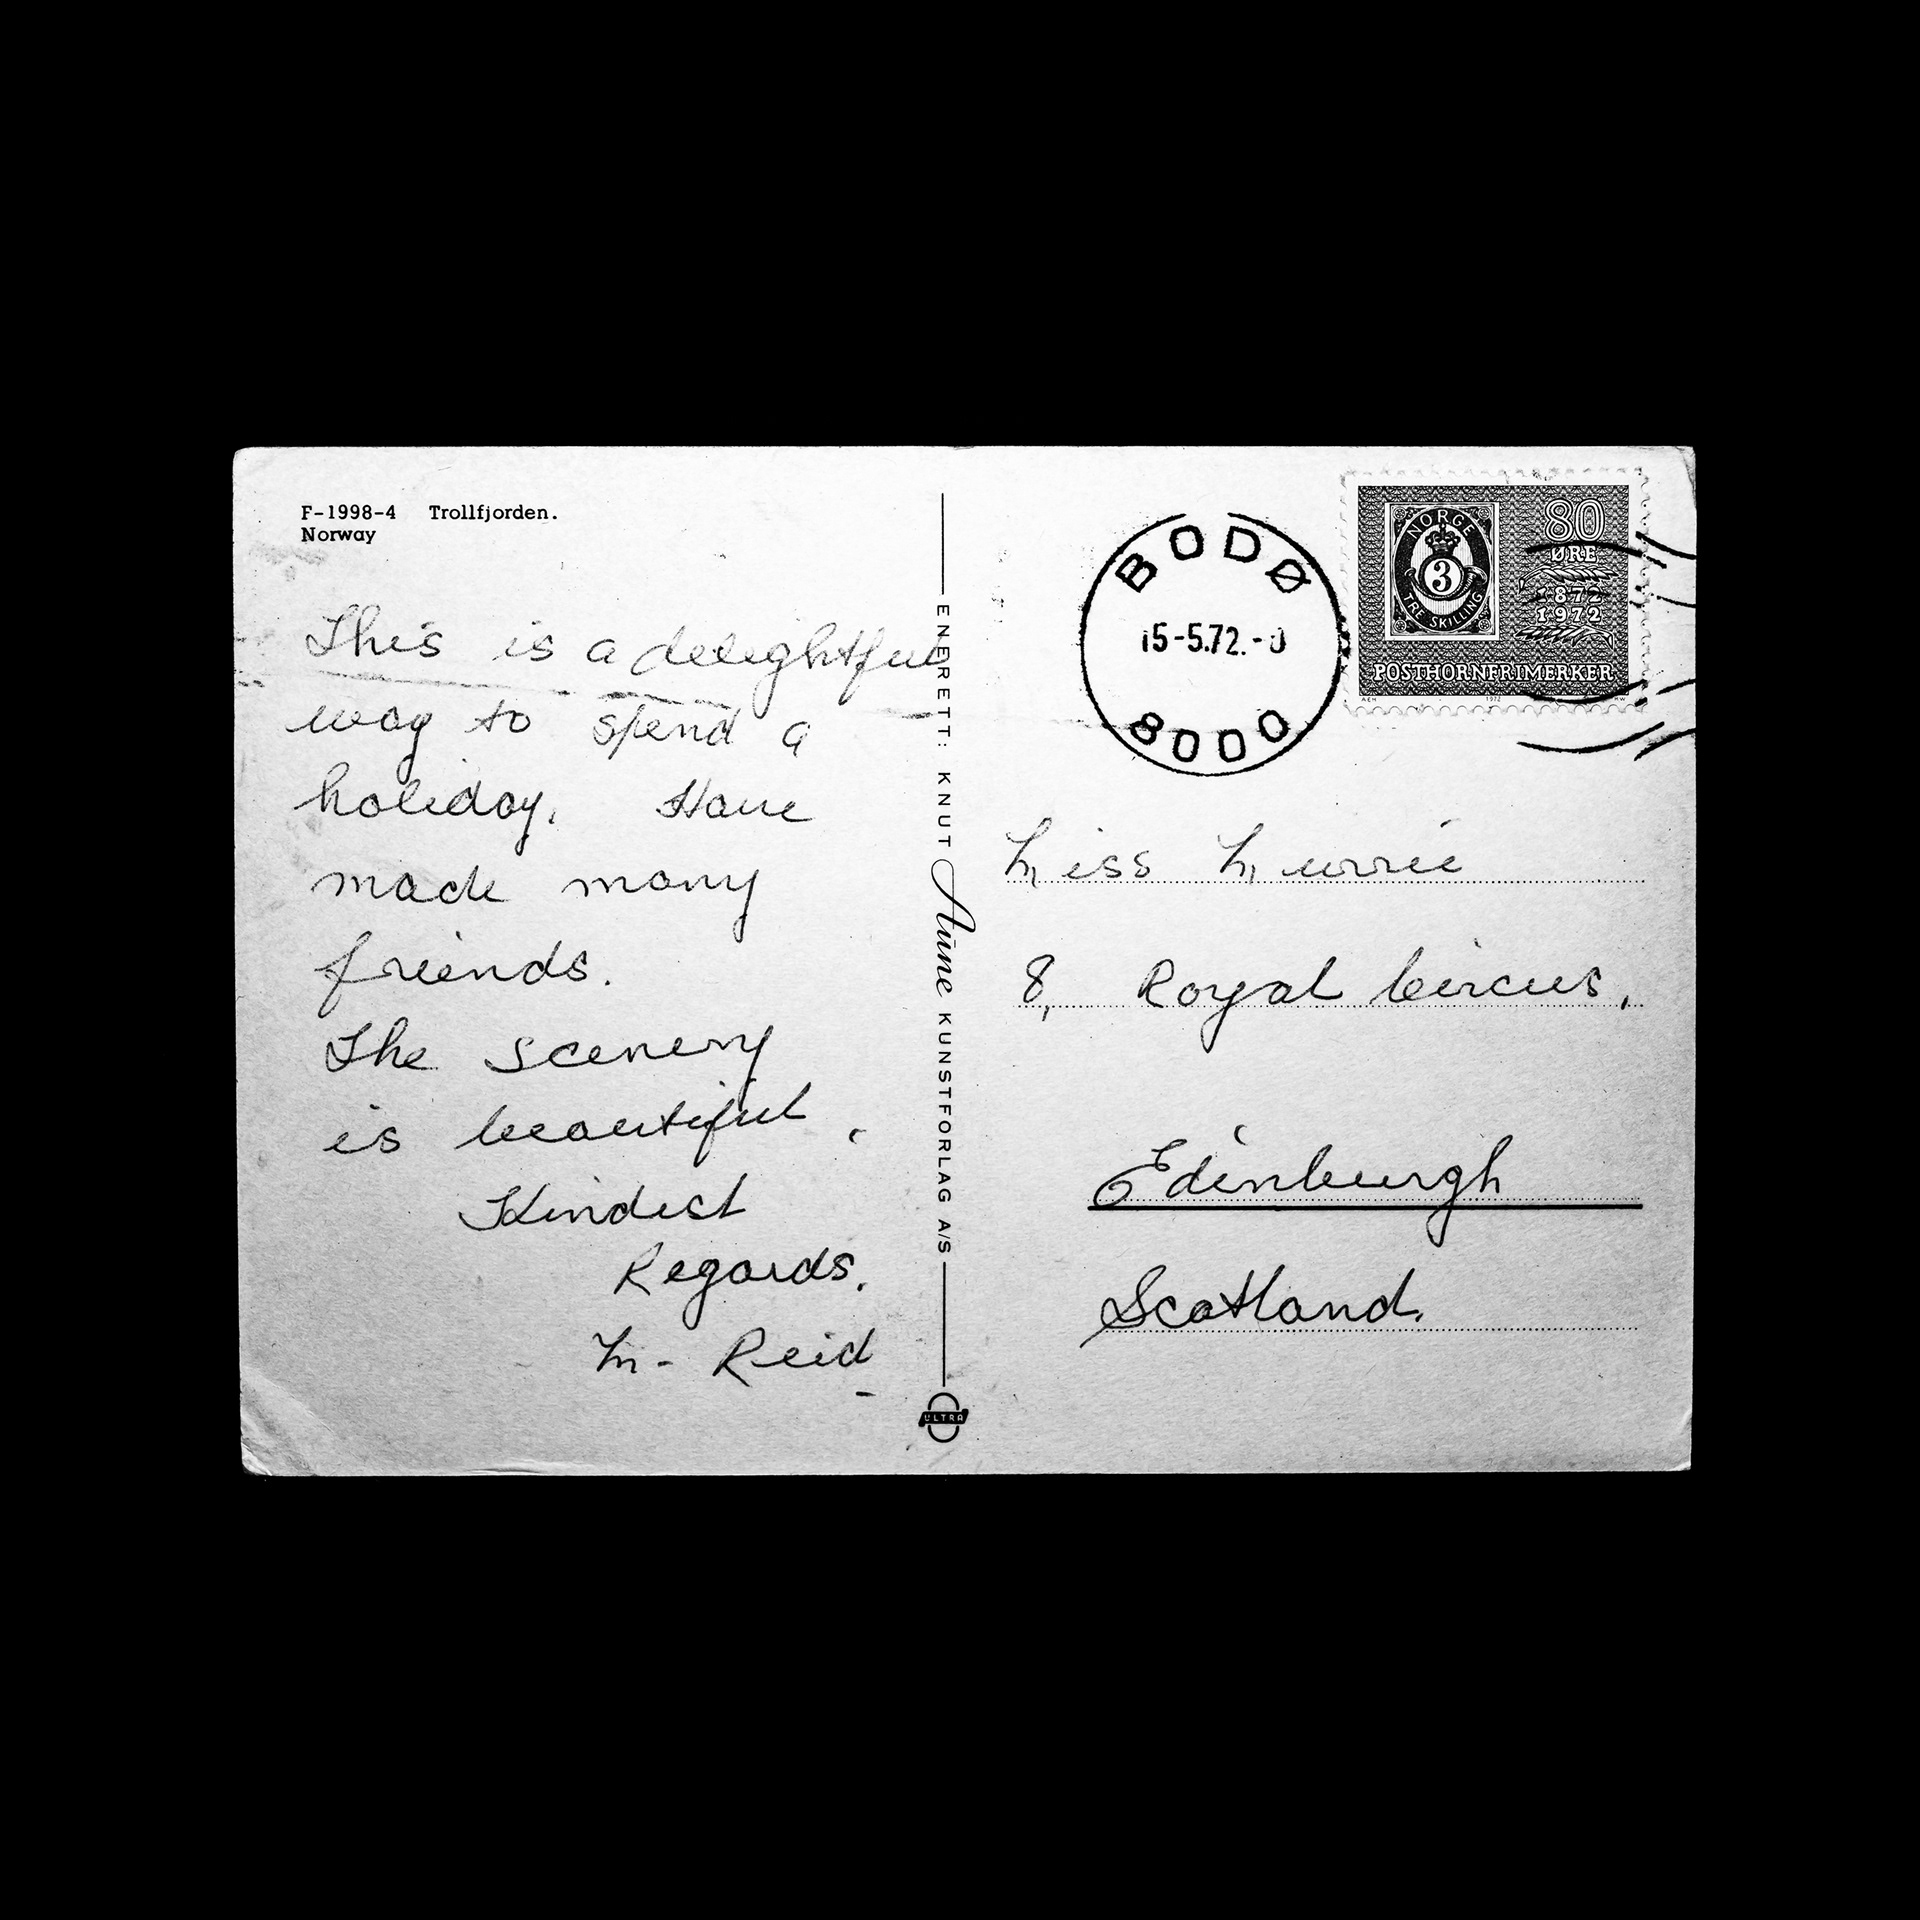 F-1998-4 Trollfjorden.
Norway
This is a delightful
way to spend a
holiday. Have
made many
friends.
The scenery
is beautiful.
Kindest
Regards.
M- Reid
ENERETT: KNUT Aune KUNSTFORLAG A/S
ULTRA
BODØ
15-5.72.-0
8000
NORGE
3
TRE SKILLING
80
ØRE
1872
1972
POSTHORNFRIMERKER
1972
Miss Murrie
8, Royal Circus,
Edinburgh
Scotland.